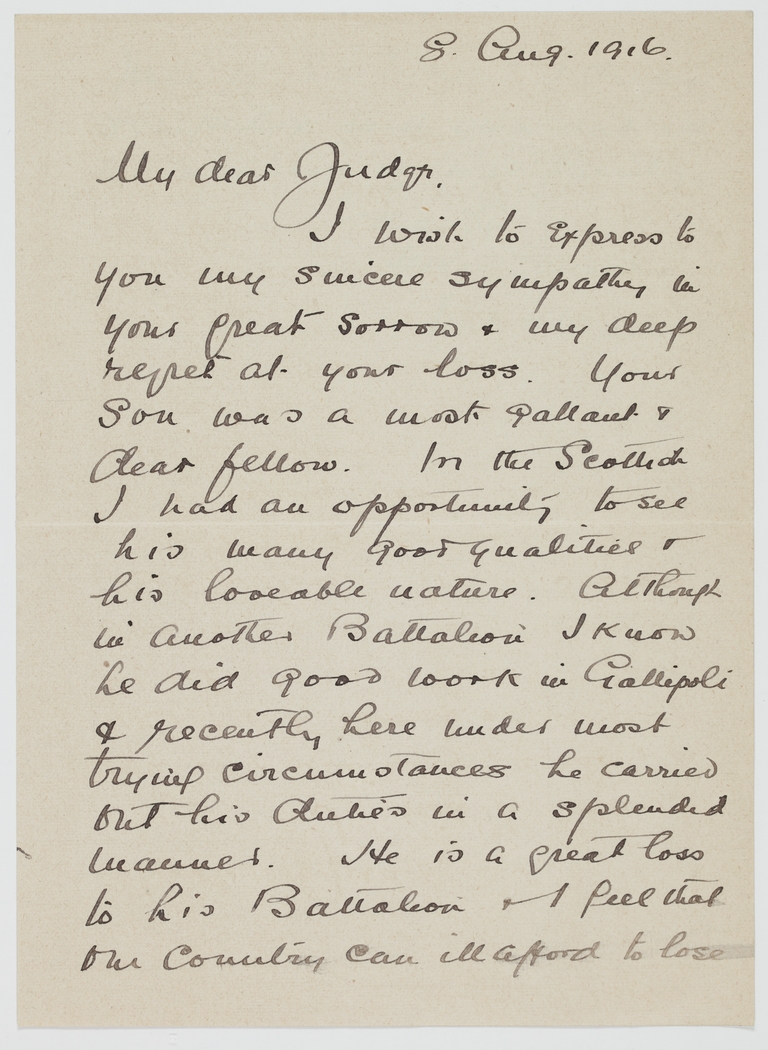 8. Aug. 1916.
My dear Judge,
I wish to express to
you my sincere sympathy in
your great sorrow & my deep
regret at your loss. Your
Son was a most gallant &
dear fellow. In the Scottish
I had an opportunity to see
his many good qualities &
his loveable nature. Although
in another Battalion I know
he did good work in Gallipoli
& recently here under most
trying circumstances he carried
out his duties in a splendid
manner. He is a great loss
to his Battalion & I feel that
our Country can ill afford to lose